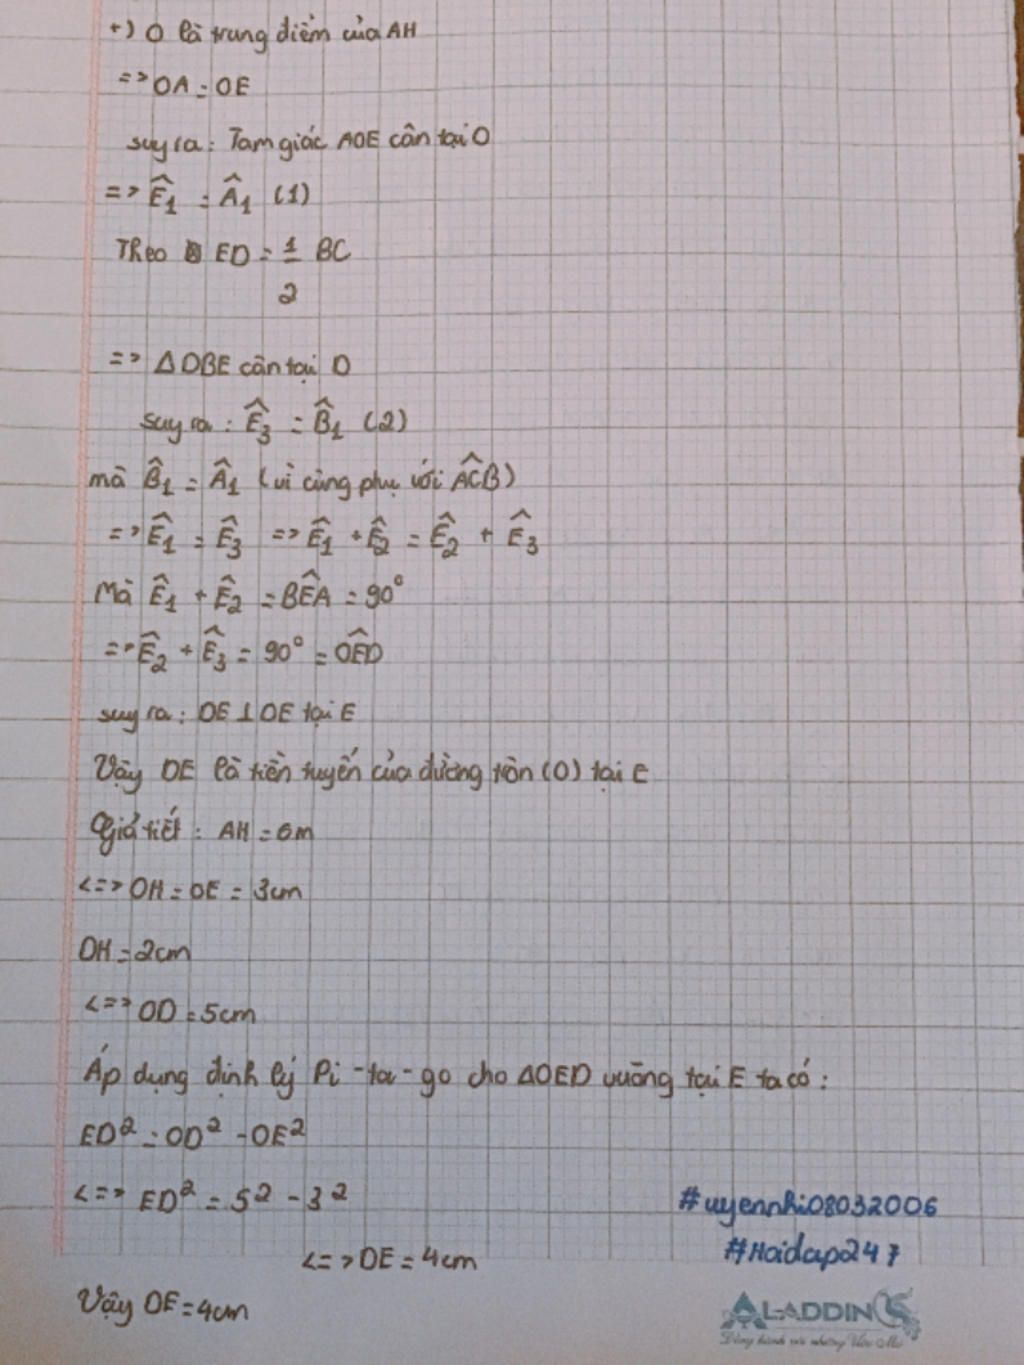 +) O là trung điểm của AH
=> OA = OE
suy ra: Tam giác AOE cân tại O
=> Ê1 = Â1 (1)
Theo ED = 1/2 BC
=> Δ DBE cân tại D
suy ra: Ê3 = B̂1 (2)
mà B̂1 = Â1 (vì cùng phụ với AĈB)
=> Ê1 = Ê3 => Ê1 + Ê2 = Ê2 + Ê3
Mà Ê1 + Ê2 = BÊA = 90°
=> Ê2 + Ê3 = 90° = OÊD
suy ra: DE ⊥ OE tại E
Vậy DE là tiền tuyến của đường tròn (O) tại E
Giả tiết: AH = 6m
<=> OH = OE = 3cm
DH = 2cm
<=> OD = 5cm
Áp dụng định lý Pi-ta-go cho ΔOED vuông tại E ta có:
ED² = OD² - OE²
<=> ED² = 5² - 3²
<=> DE = 4cm
Vậy DE = 4cm
#uyennhi08032006
#Hoidap247
ALADDIN
Đồng hành với những Ước Mơ